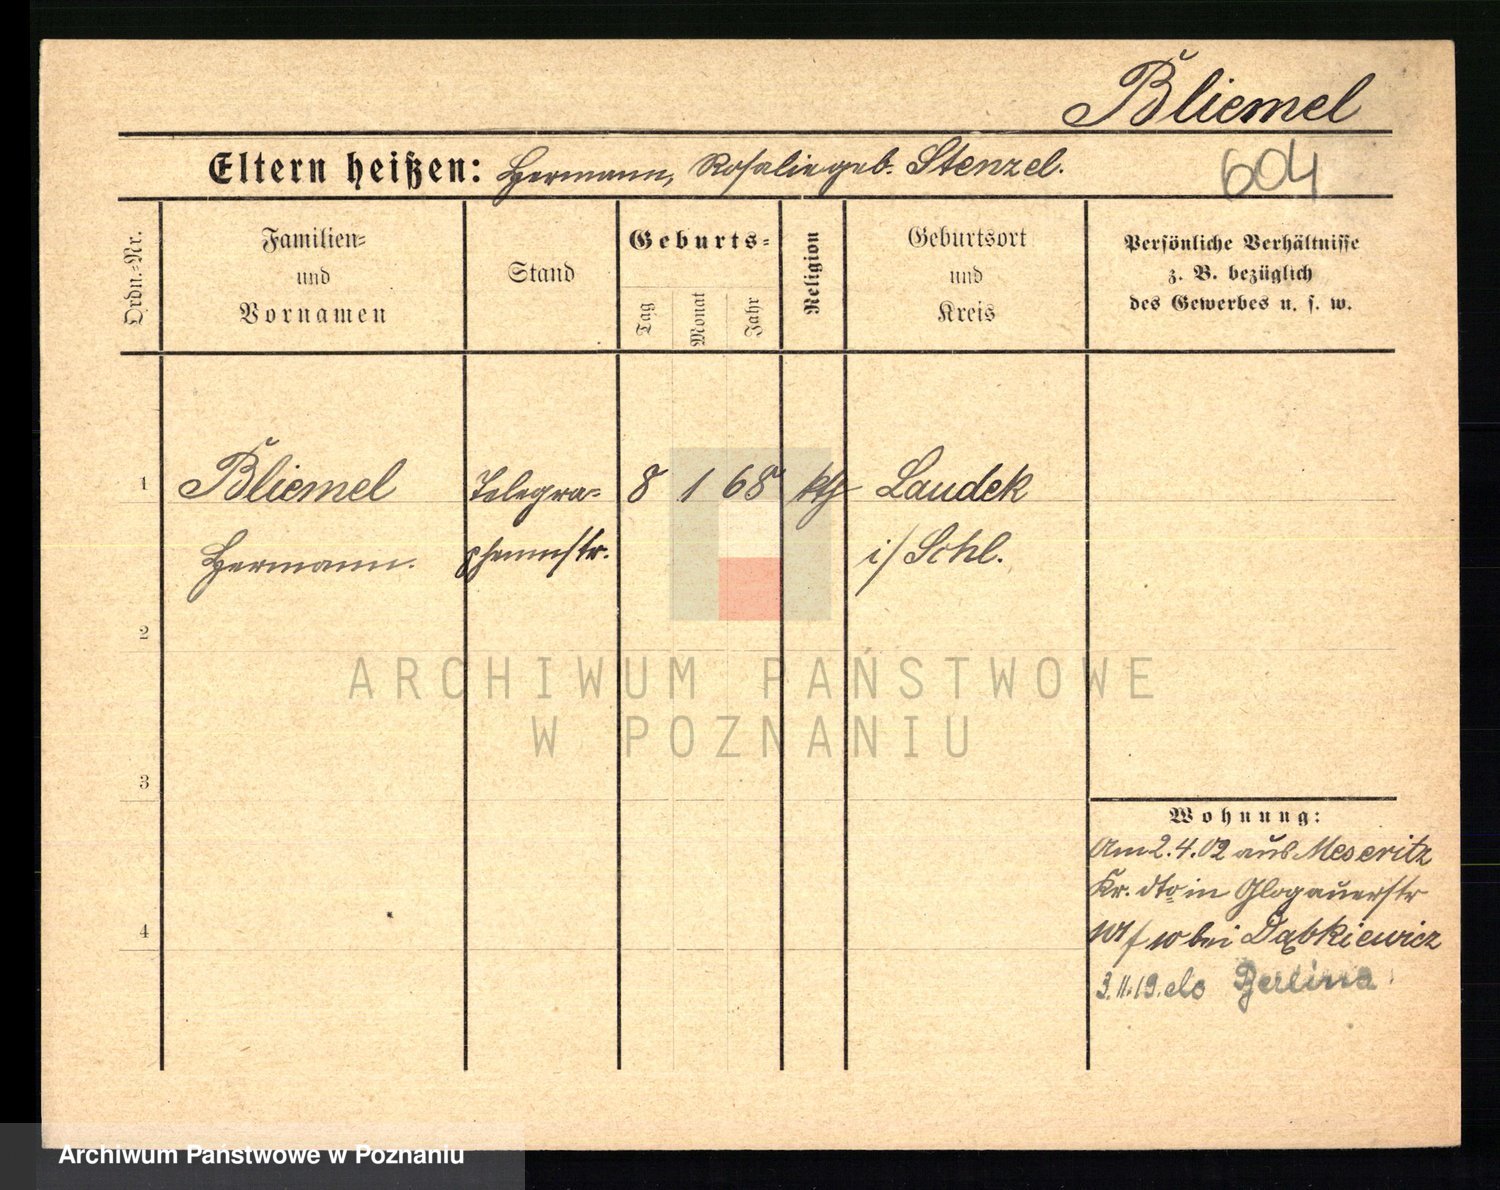 Bliemel
Eltern heißen: Hermann, Rosalie geb. Stenzel.
604
Ordn.-Nr.
Familien-
und
Vornamen
Stand
Geburts-
Tag
Monat
Jahr
Religion
Geburtsort
und
Kreis
Persönliche Verhältnisse
z. B. bezüglich
des Gewerbes u. s. w.
1 Bliemel Telegra- 8 1 68 kth Landek
Hermann. i/Schl.
2
ARCHIWUM PAŃSTWOWE
W POZNANIU
3
Wohnung:
Am 2.4.02 aus Meseritz
Kr. dto in Glogauerstr
bei Dąbkiewicz
4
3.11.19. do Berlina
Archiwum Państwowe w Poznaniu